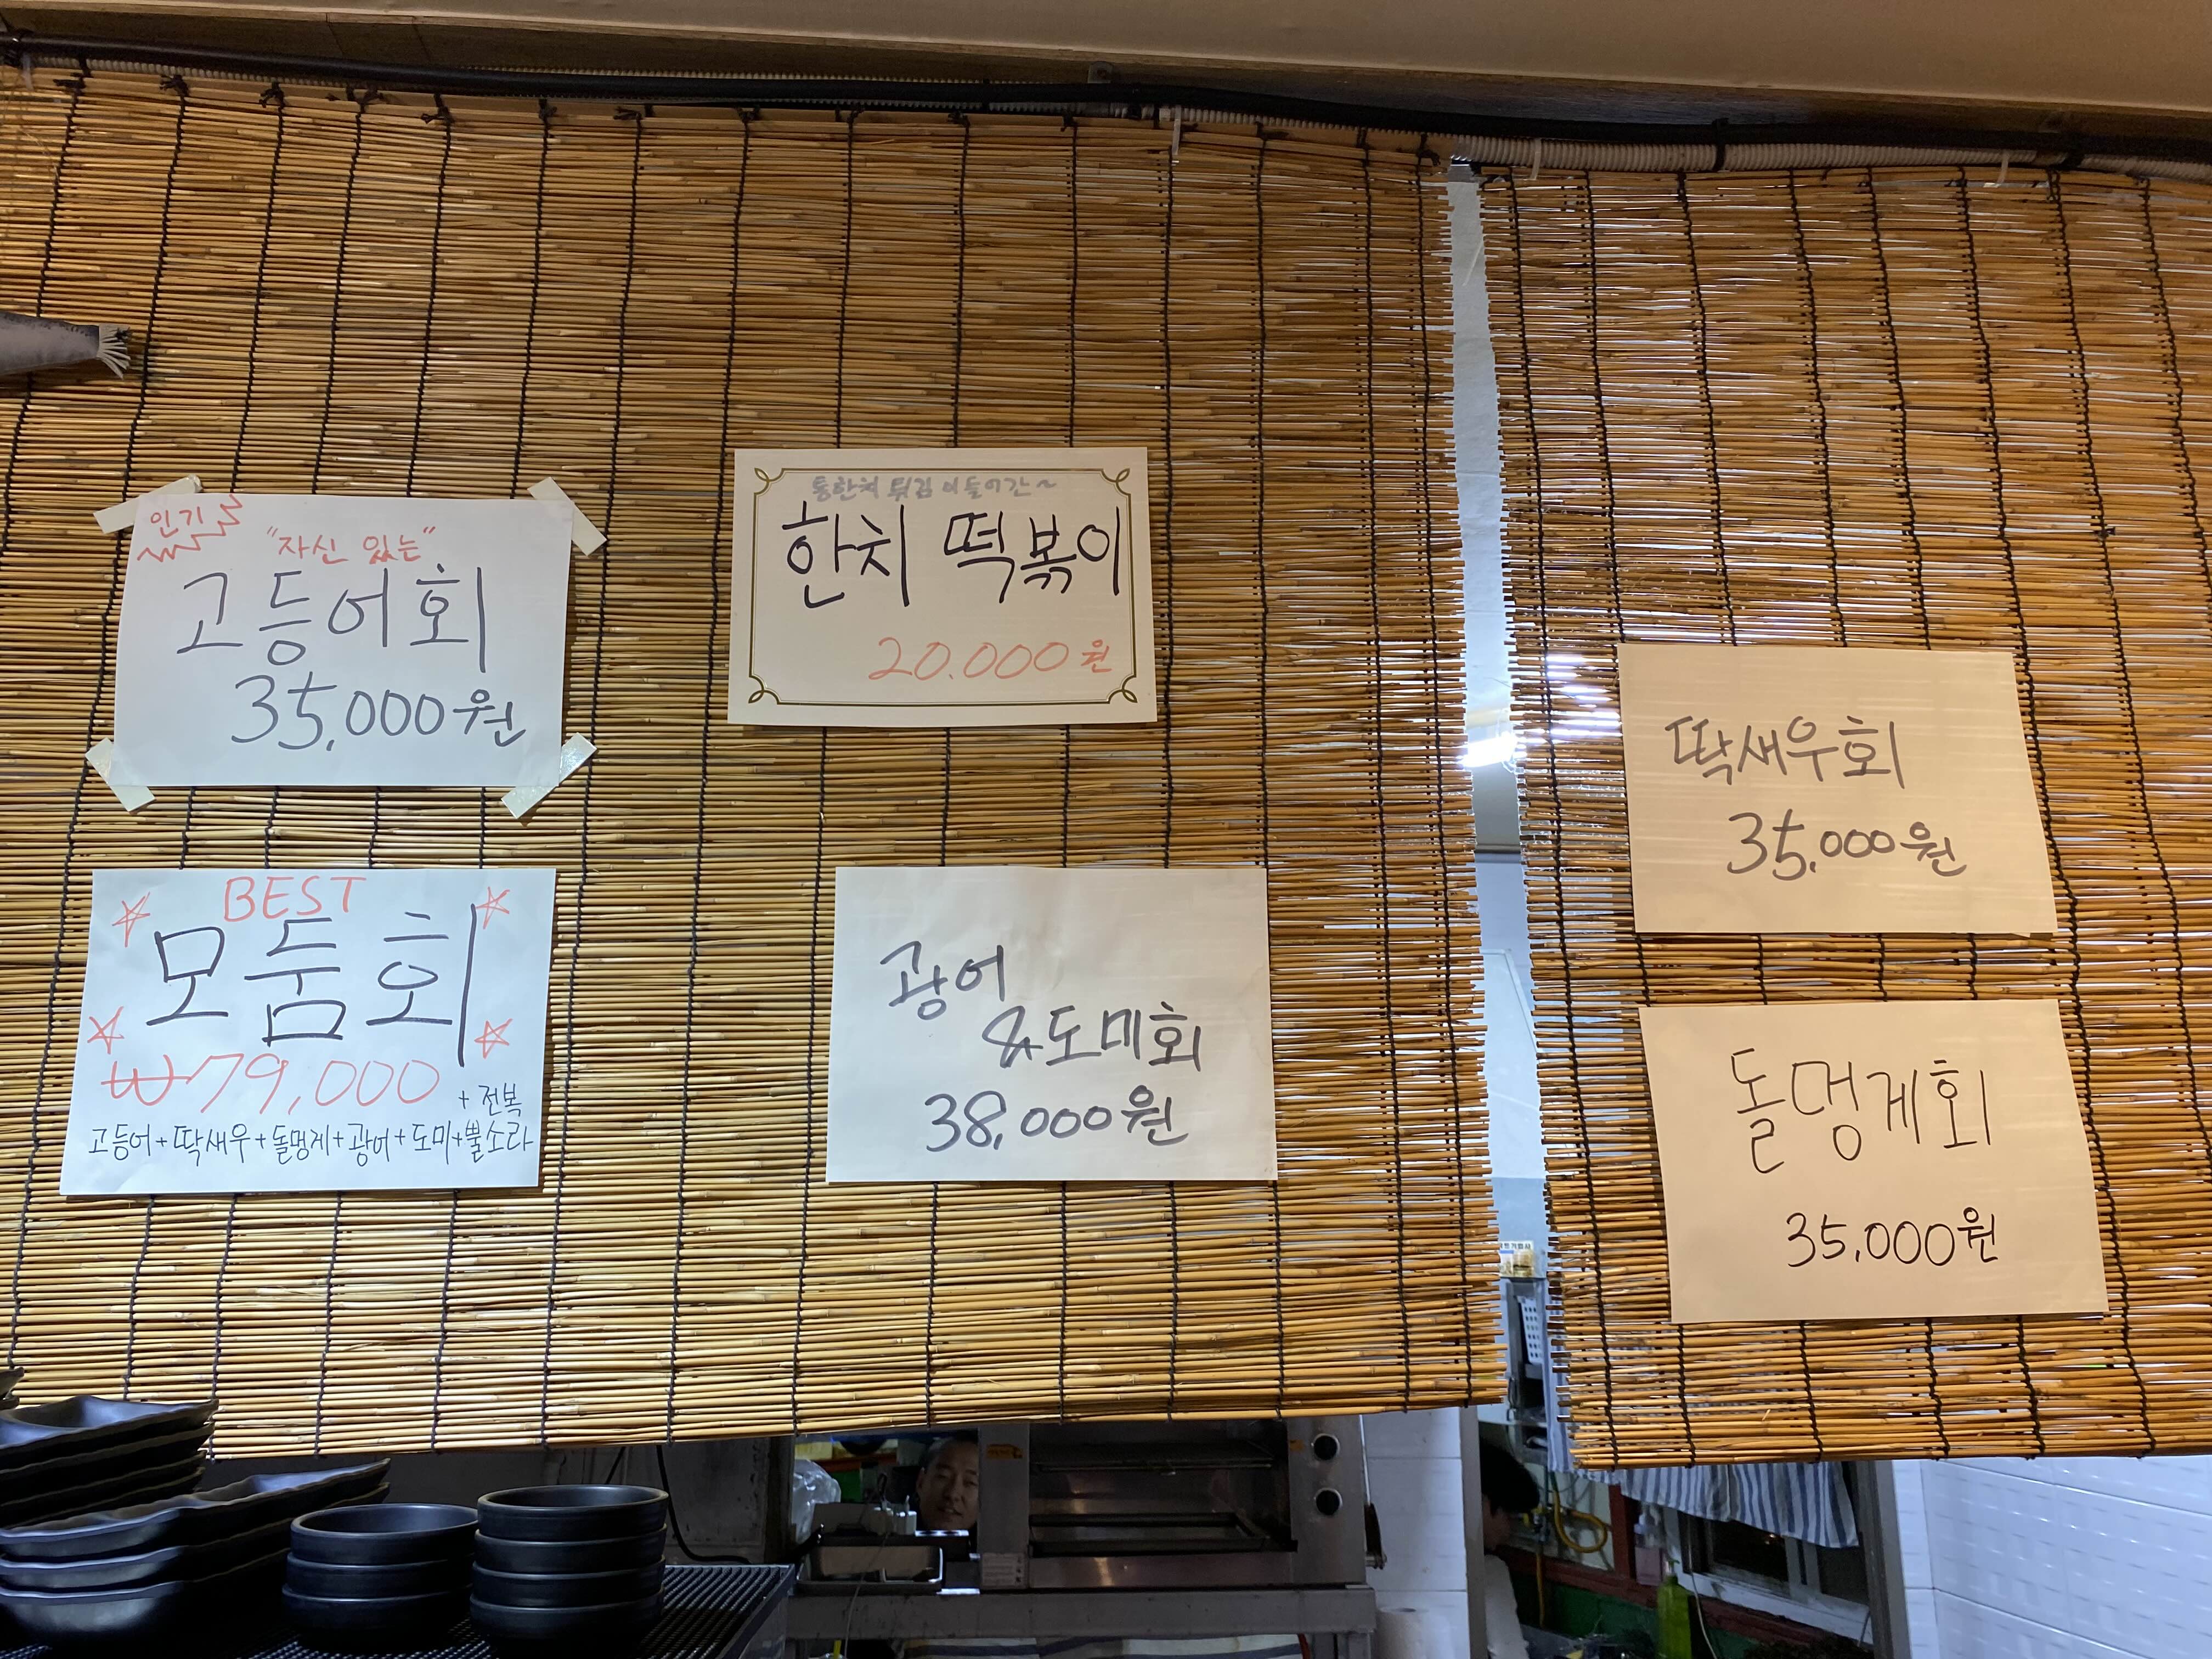 인기
"자신 있는"
고등어회
35,000원
통한치 튀김이 들어간~
한치 떡볶이
20.000원
딱새우회
35,000원
BEST
모둠회
₩79,000
+ 전복
고등어+딱새우+돌멍게+광어+도미+뿔소라
광어
&도미회
38,000원
돌멍게회
35,000원